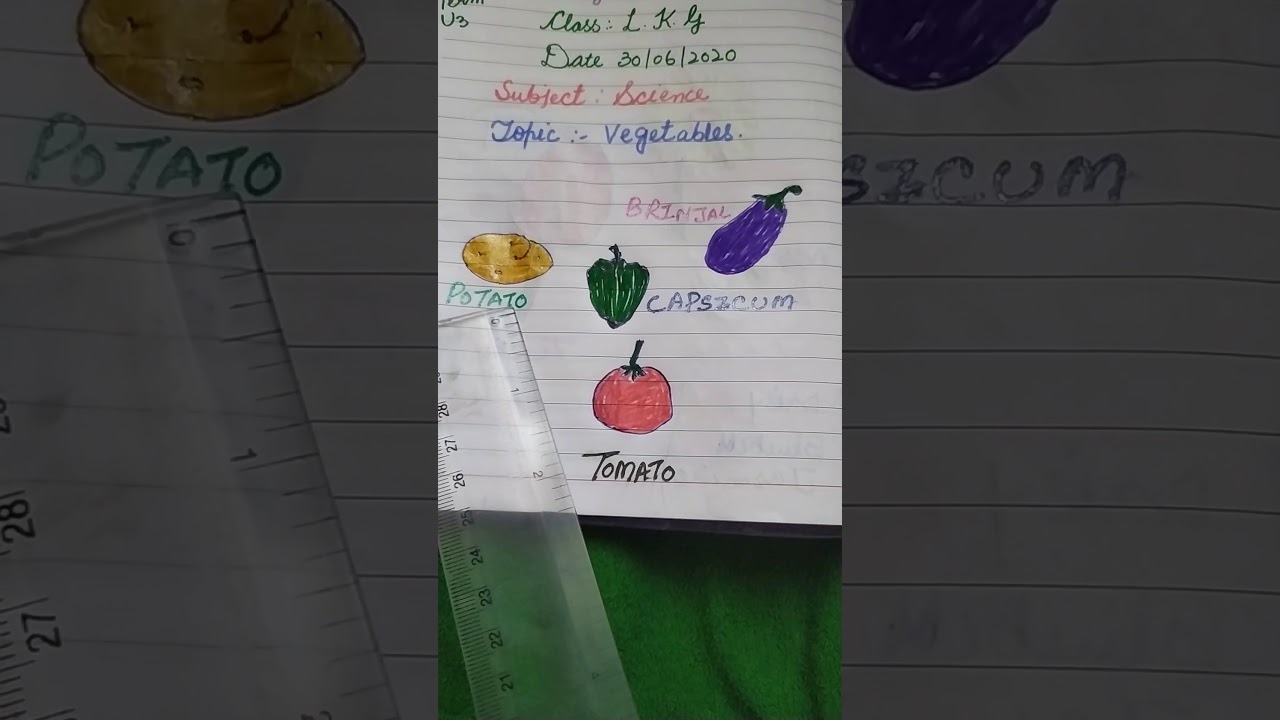 U3
Class:- L.K.G
Date 30/06/2020
Subject : Science
Topic :- Vegetables.
BRINJAL
POTATO
CAPSICUM
TOMATO
0
1
2
28
27
26
25
24
23
22
21